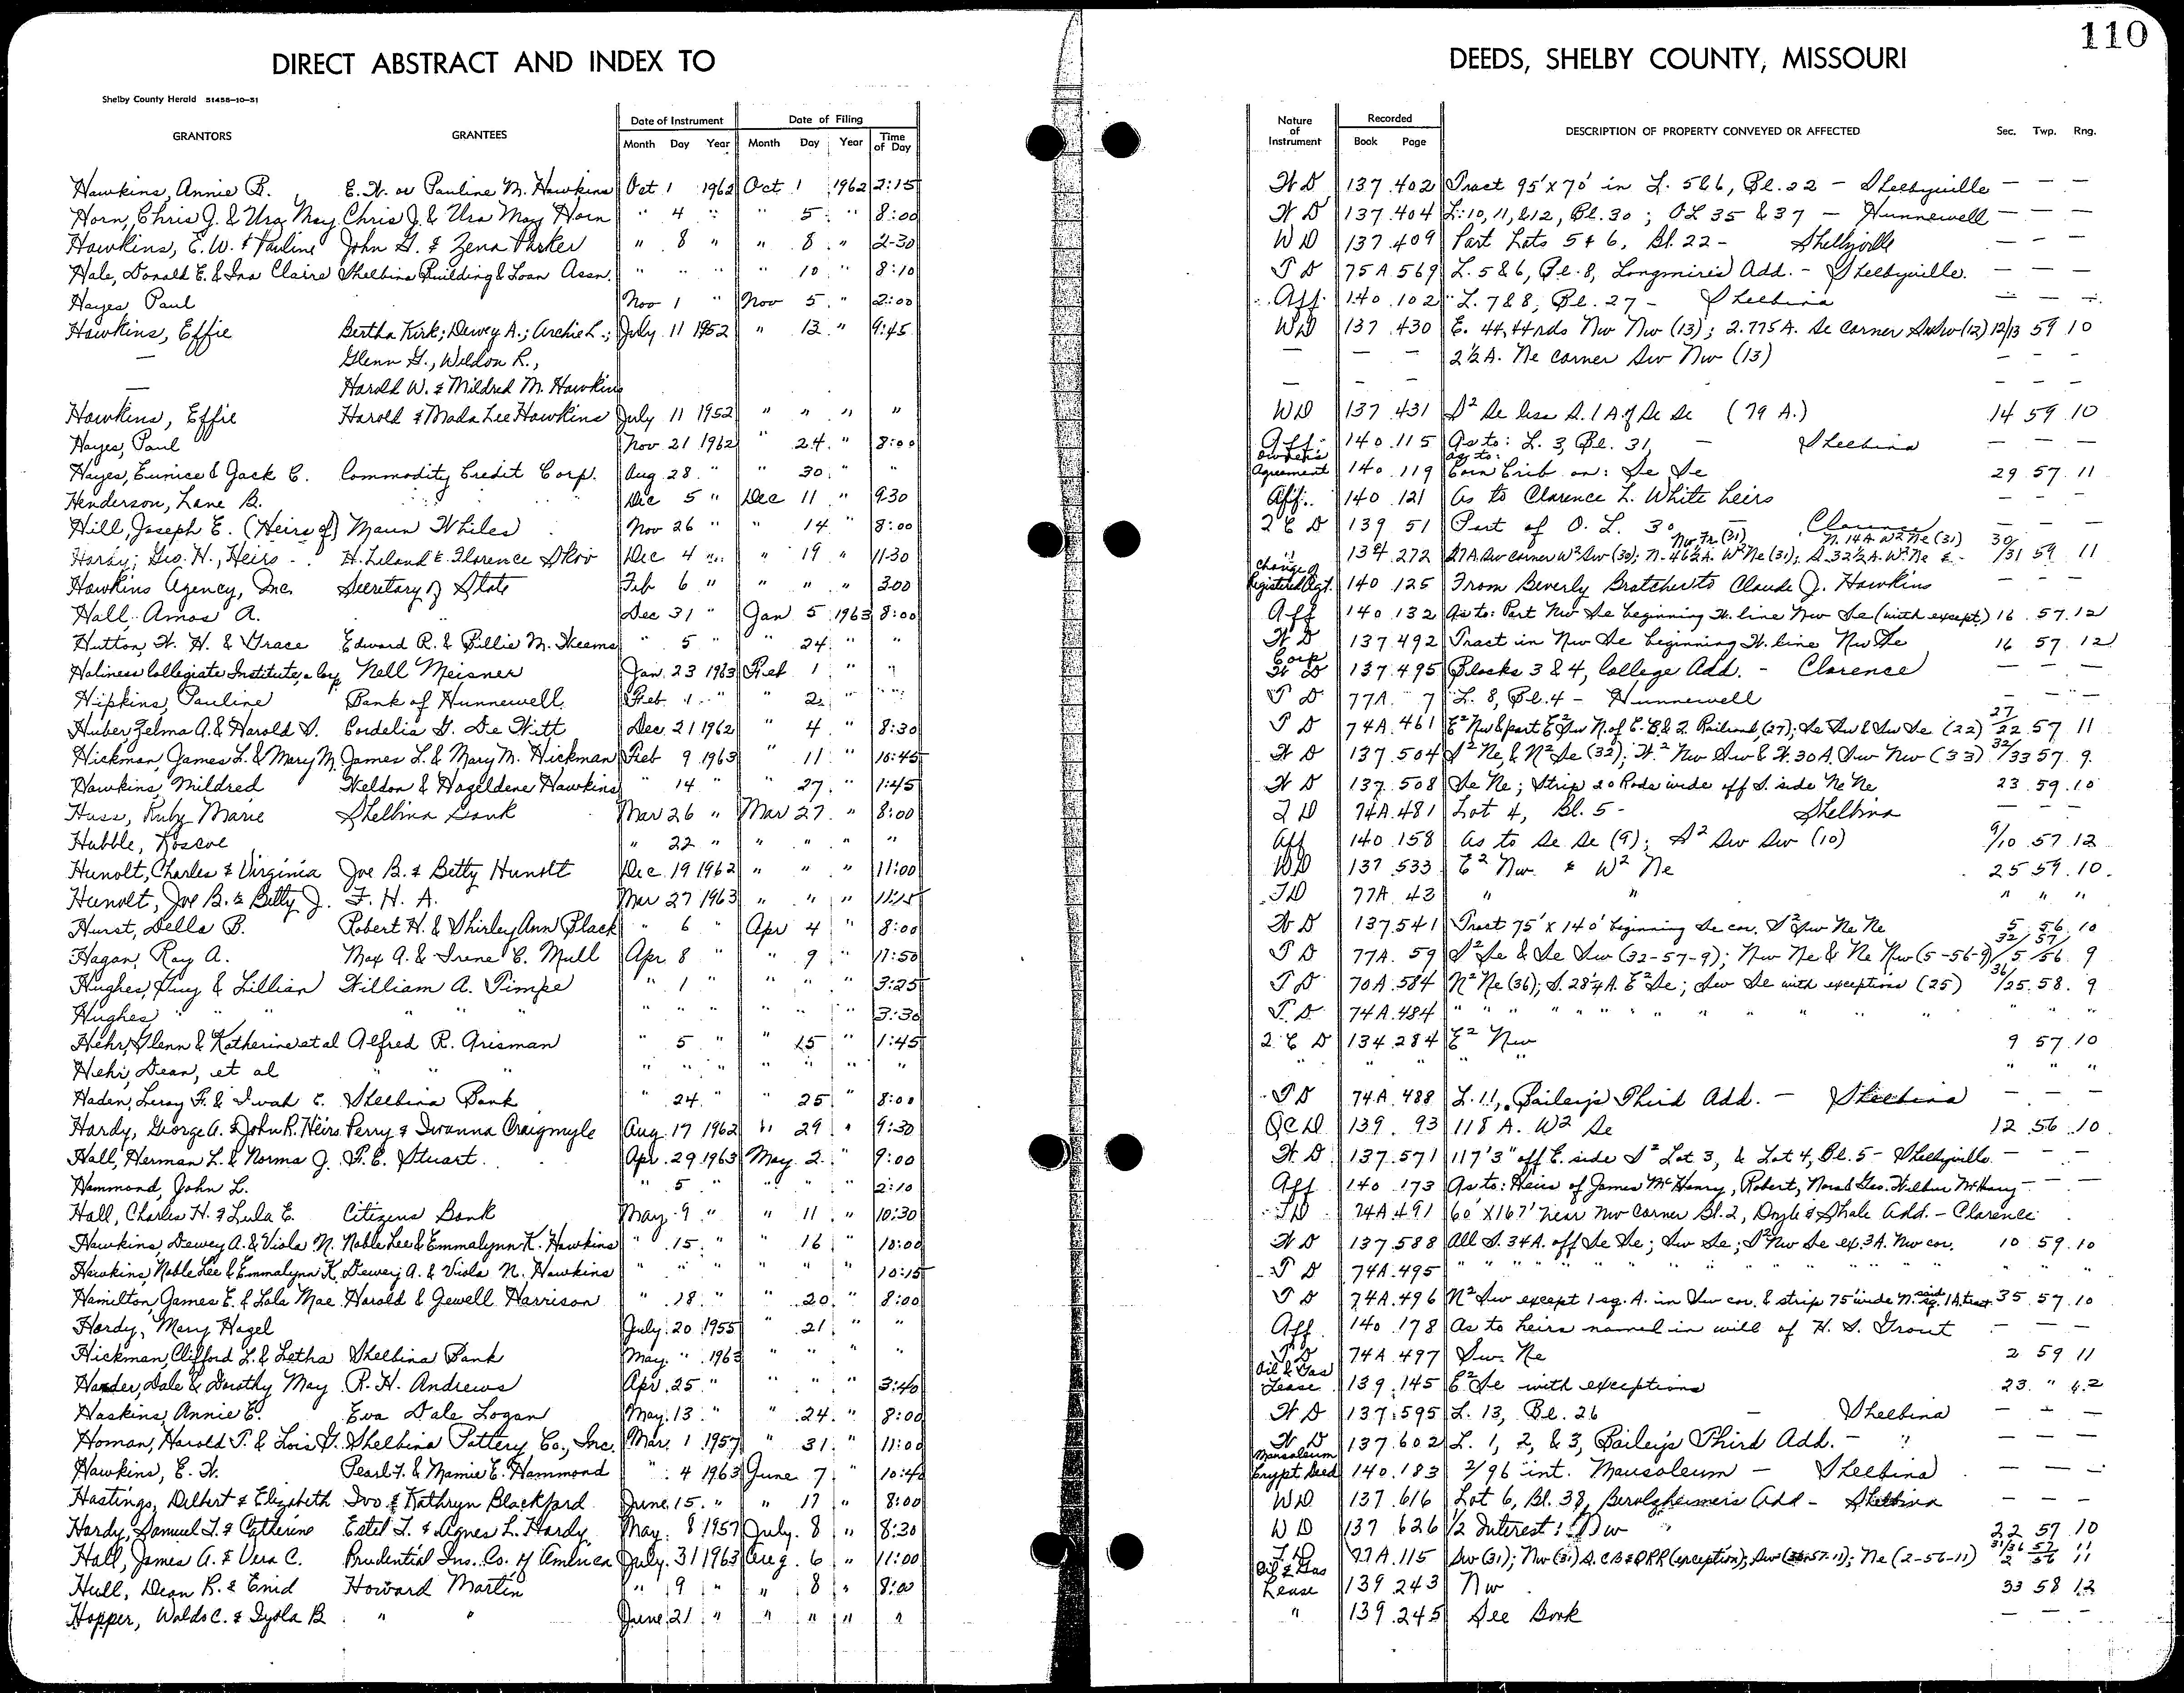 110
DIRECT ABSTRACT AND INDEX TO DEEDS, SHELBY COUNTY, MISSOURI
Shelby County Herald 51458-10-51
Date of Instrument Date of Filing Nature of Instrument Recorded
GRANTORS GRANTEES Month Day Year Month Day Year Time of Day Book Page DESCRIPTION OF PROPERTY CONVEYED OR AFFECTED Sec. Twp. Rng.
Hawkins, Annie B. E. W. or Pauline M. Hawkins Oct 1 1962 Oct 1 1962 2:15 W D 137 402 Tract 95' x 70' in L. 5 & 6, Bl. 22 - Shelbyville — — —
Horn, Chris J. & Ura May Chris J. & Ura May Horn " 4 " " 5 " 8:00 W D 137 404 L. 10, 11, & 12, Bl. 30 ; OL 35 & 37 - Hunnewell — — —
Hawkins, E. W. & Pauline John G. & Zena Parker " 8 " " 8 " 2-30 WD 137 409 Part Lots 5 & 6, Bl. 22 - Shelbyville — — —
Hale, Donald E. & Ina Claire Shelbina Building & Loan Assn. " " " " 10 " 8:10 T D 75A 569 L. 5 & 6, Bl. 8, Longmire's Add. - Shelbyville. — — —
Hayes, Paul Nov 1 " Nov 5 " 2:00 Aff. 140 102 L. 7 & 8, Bl. 27 - Shelbina — — —
Hawkins, Effie Bertha Kirk; Dewey A.; Archie L.; July 11 1952 " 13 " 9:45 WD 137 430 E. 44.44 rds Nw Nw (13) ; 2.775 A. Se corner SwSw (12) 12/13 59 10
— Glenn G., Weldon R., — — — 2½ A. Ne corner Sw Nw (13) — —
— Harold W. & Mildred M. Hawkins — — — — — —
Hawkins, Effie Harold & Mada Lee Hawkins July 11 1952 " " " " WD 137 431 S² Se less S. 1 A of Se Se (79 A.) 14 59 10
Hayes, Paul Nov 21 1962 " 24 " 8:00 Aff. 140 115 As to: L. 3, Bl. 31, - Shelbina — — —
Hayes, Eunice & Jack C. Commodity Credit Corp. Aug 28 " " 30 " " Owner's Agreement 140 119 as to: Corn Crib on: Se Se 29 57 11
Henderson, Lane B. Dec 5 " Dec 11 " 9:30 Aff. 140 121 As to Clarence L. White heirs — — —
Hill, Joseph E. (Heirs of) Maun Whiles Nov 26 " " 14 " 8:00 2 C D 139 51 Part of O. L. 30 — Clarence — — —
Hardy; Geo. H., Heirs H. Leland & Florence Dec 4 " " 19 " 11:30 " 134 272 27 A. Sw corner W² Sw (30); N. 46½ A. W² Ne (31); S. 32½ A. W² Ne & Nw Fr (31) N. 14 A W² Ne (31) 30/31 59 11
Hawkins Agency, Inc. Secretary of State Feb 6 " " " " 3:00 Change of Registered Agt. 140 125 From Beverly Bratcher to Claude J. Hawkins — — —
Hall, Amos A. Dec 31 " Jan 5 1963 8:00 Aff 140 132 As to: Part Nw Se beginning W. line Nw Se (with except.) 16 57 12
Hutton, W. H. & Grace Edward R. & Billie M. " 5 " " 24 " " W D 137 492 Tract in Nw Se beginning W. line Nw Se 16 57 12
Holiness Collegiate Institute, a Corp Nell Meisner Jan 23 1963 Feb 1 " " Corp W D 137 495 Blocks 3 & 4, College Add. - Clarence — — —
Hipkins, Pauline Bank of Hunnewell Feb 1 " " 2 " " T D 77A 7 L. 8, Bl. 4 - Hunnewell — — —
Huber, Zelma A. & Harold S. Cordelia G. De Witt Dec 21 1962 " 4 " 8:30 T D 74A 461 E² Nw & part E² Sw N. of C. B & Q. Railroad (27); Se Sw & Sw Se (22) 27/22 57 11
Hickman, James L. & Mary M. James L. & Mary M. Hickman Feb 9 1963 " 11 " 10:45 W D 137 504 S² Ne, & N² Se (32); W.² Nw Sw & W. 30 A. Sw Nw (33) 32/33 57 9
Hawkins, Mildred Weldon & Hazeldene Hawkins " 14 " " 27 " 1:45 W D 137 508 Se Ne ; Strip 20 Rods wide off S. side Ne Ne 23 59 10
Huss, Ruby Marie Shelbina Bank Mar 26 " Mar 27 " 8:00 T D 74A 481 Lot 4, Bl. 5 - Shelbina — — —
Hubble, Roscoe " 22 " " " " " Aff 140 158 As to Se Se (9) ; S² Sw Sw (10) 9/10 57 12
Hunolt, Charles & Virginia Joe B. & Betty Hunolt Dec 19 1962 " " " 11:00 WD 137 533 E² Nw & W² Ne 25 59 10
Hunolt, Joe B. & Betty J. F. H. A. Mar 27 1963 " " " 11:15 TD 77A 43 " " " " "
Hurst, Della B. Robert H. & Shirley Ann Black " 6 " Apr 4 " 8:00 W D 137 541 Tract 75' x 140' beginning Se cor. S² Sw Ne Ne 5 56 10
Hagan, Ray A. Max A. & Irene C. Mull Apr 8 " " 9 " 11:50 T D 77A 59 S² Se & Se Sw (32-57-9); Nw Ne & Ne Nw (5-56-9) 32/5 57/56 9
Hughes, Guy & Lillian William A. Pimpe " 1 " " " " 3:25 T D 70A 584 N² Ne (36); S. 28¼ A. E² Se ; Sw Se with exceptions (25) 36/25 58 9
Hughes " " " " " " " " " 3:30 T D 74A 484 " " " " " " " " " " " " "
Hehr, Glenn & Katherine et al Alfred R. Grisman " 5 " " 15 " 1:45 2 C D 134 284 E² Nw 9 57 10
Hehr, Dean, et al " " " " " " " " " " " " " " " "
Haden, Leroy F. & Ivah E. Shelbina Bank " 24 " " 25 " 8:00 T D 74A 488 L. 11, Bailey's Third Add. - Shelbina — — —
Hardy, George A. & John R. Heirs Perry & Ivanna Craigmyle Aug 17 1962 " 29 " 9:30 QC D 139 93 118 A. W² Se 12 56 10
Hall, Herman L. & Norma J. F. E. Stuart Apr 29 1963 May 2 " 9:00 W D 137 571 117' 3" off E. side S² Lot 3, & Lot 4, Bl. 5 - Shelbyville — — —
Hammond, John L. " 5 " " " " 2:10 Aff 140 173 As to: Heirs of James McHenry, Robert, Nora & Geo. Wilbur McHenry — — —
Hall, Charles H. & Lula E. Citizens Bank May 9 " " 11 " 10:30 TD 74A 491 60' X 167' near Nw Corner Bl. 2, Doyle & Shale Add. - Clarence
Hawkins, Dewey A. & Viola N. Noble Lee & Emmalynn K. Hawkins " 15 " " 16 " 10:00 W D 137 588 All S. 34 A. off Se Se ; Sw Se ; S² Nw Se ex. 3 A. Nw cor. 10 59 10
Hawkins, Noble Lee & Emmalynn K. Dewey A. & Viola N. Hawkins " " " " " " 10:15 T D 74A 495 " " " " " " " " " " " " " "
Hamilton, James E. & Lola Mae Harold & Jewell Harrison " 18 " " 20 " 8:00 T D 74A 496 N² Sw except 1 sq. A. in Sw cor. & strip 75' wide N. said sq. 1 A. tract 35 57 10
Hardy, Mary Hazel July 20 1955 " 21 " " Aff. 140 178 As to heirs named in will of H. S. Grout — — —
Hickman, Clifford L. & Letha Shelbina Bank May " 1963 " " " " T D 74A 497 Sw Ne 2 59 11
Harder, Dale & Dorothy May R. H. Andrews Apr 25 " " " " 3:40 Oil & Gas Lease 139 145 E² Se with exceptions 23 " 12
Haskins, Annie E. Eva Dale Logan May 13 " " 24 " 8:00 W D 137 595 L. 13, Bl. 26 - Shelbina — — —
Homan, Harold P. & Lois G. Shelbina Pottery Co., Inc. Mar 1 1957 " 31 " 11:00 W D 137 602 L. 1, 2, & 3, Bailey's Third Add. - " — — —
Hawkins, E. W. Pearl F. & Mamie E. Hammond " 4 1963 June 7 " 10:40 Mausoleum Crypt Deed 140 183 2/96 int. Mausoleum - Shelbina — — —
Hastings, Delbert & Elizabeth Ivo & Kathryn Blackford June 15 " " 17 " 8:00 WD 137 616 Lot 6, Bl. 38, Berolzheimer's Add - Shelbina — — —
Hardy, Samuel T. & Catherine Estel T. & Agnes L. Hardy May 8 1957 July 8 " 8:30 W D 137 626 ½ Interest : Nw 22 57 10
Hall, James A. & Vera C. Prudential Ins. Co. of America July 31 1963 Aug 6 " 11:00 TD 77A 115 Sw (31); Nw (31) S. CB&QRR (exception); Ne (2-56-11) 31/36 57 11 2 56 11
Hull, Dean R. & Enid Howard Martin " 9 " " 8 " 8:00 Oil & Gas Lease 139 243 Nw 33 58 12
Hopper, Waldo C. & Iyola B " " June 21 " " " " " " 139 245 See Book — — —